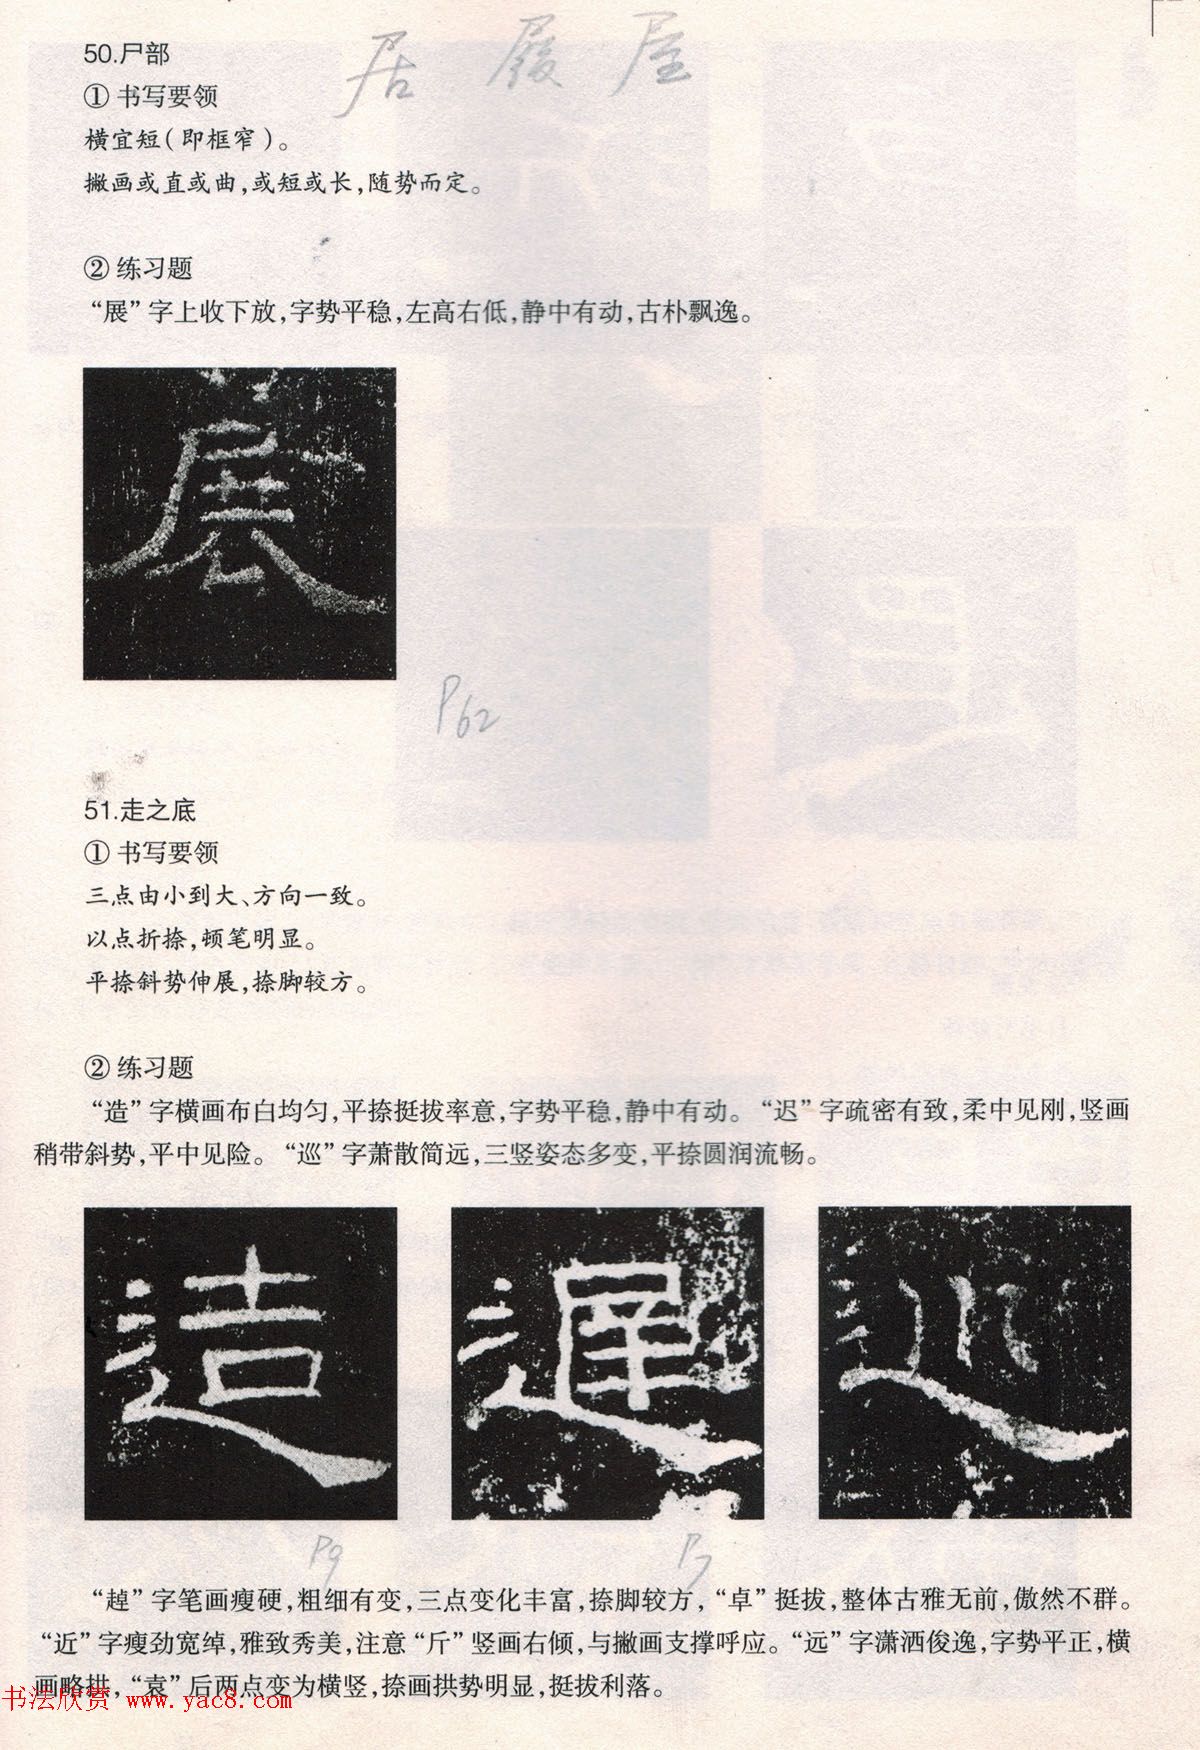 居 履 屋
50.尸部
① 书写要领
横宜短(即框窄)。
撇画或直或曲,或短或长,随势而定。
② 练习题
“展”字上收下放,字势平稳,左高右低,静中有动,古朴飘逸。
展
P62
51.走之底
① 书写要领
三点由小到大、方向一致。
以点折捺,顿笔明显。
平捺斜势伸展,捺脚较方。
② 练习题
“造”字横画布白均匀,平捺挺拔率意,字势平稳,静中有动。“迟”字疏密有致,柔中见刚,竖画
稍带斜势,平中见险。“巡”字萧散简远,三竖姿态多变,平捺圆润流畅。
造 遲 巡
P9 P7
“趠”字笔画瘦硬,粗细有变,三点变化丰富,捺脚较方,“卓”挺拔,整体古雅无前,傲然不群。
“近”字瘦劲宽绰,雅致秀美,注意“斤”竖画右倾,与撇画支撑呼应。“远”字潇洒俊逸,字势平正,横
画略拱,“袁”后两点变为横竖,捺画拱势明显,挺拔利落。
书法欣赏 www.yac8.com